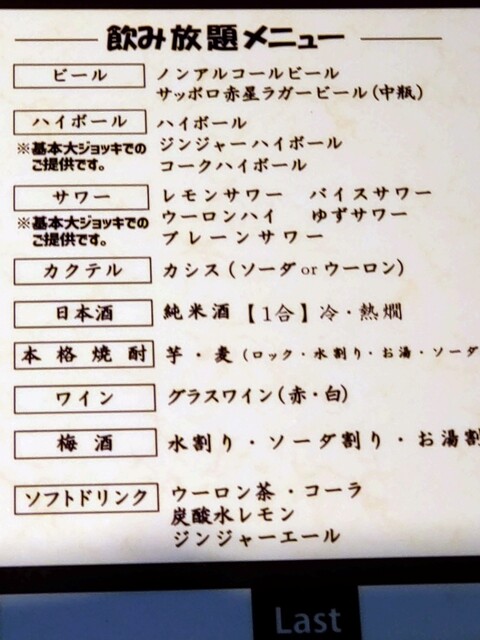 飲み放題メニュー
ビール ノンアルコールビール
サッポロ赤星ラガービール(中瓶)
ハイボール ハイボール
※基本大ジョッキでの ジンジャーハイボール
ご提供です。 コークハイボール
サワー レモンサワー バイスサワー
※基本大ジョッキでの ウーロンハイ ゆずサワー
ご提供です。 プレーンサワー
カクテル カシス(ソーダorウーロン)
日本酒 純米酒【1合】冷・熱燗
本格焼酎 芋・麦(ロック・水割り・お湯・ソーダ
ワイン グラスワイン(赤・白)
梅酒 水割り・ソーダ割り・お湯割
ソフトドリンク ウーロン茶・コーラ
炭酸水レモン
ジンジャーエール
Last